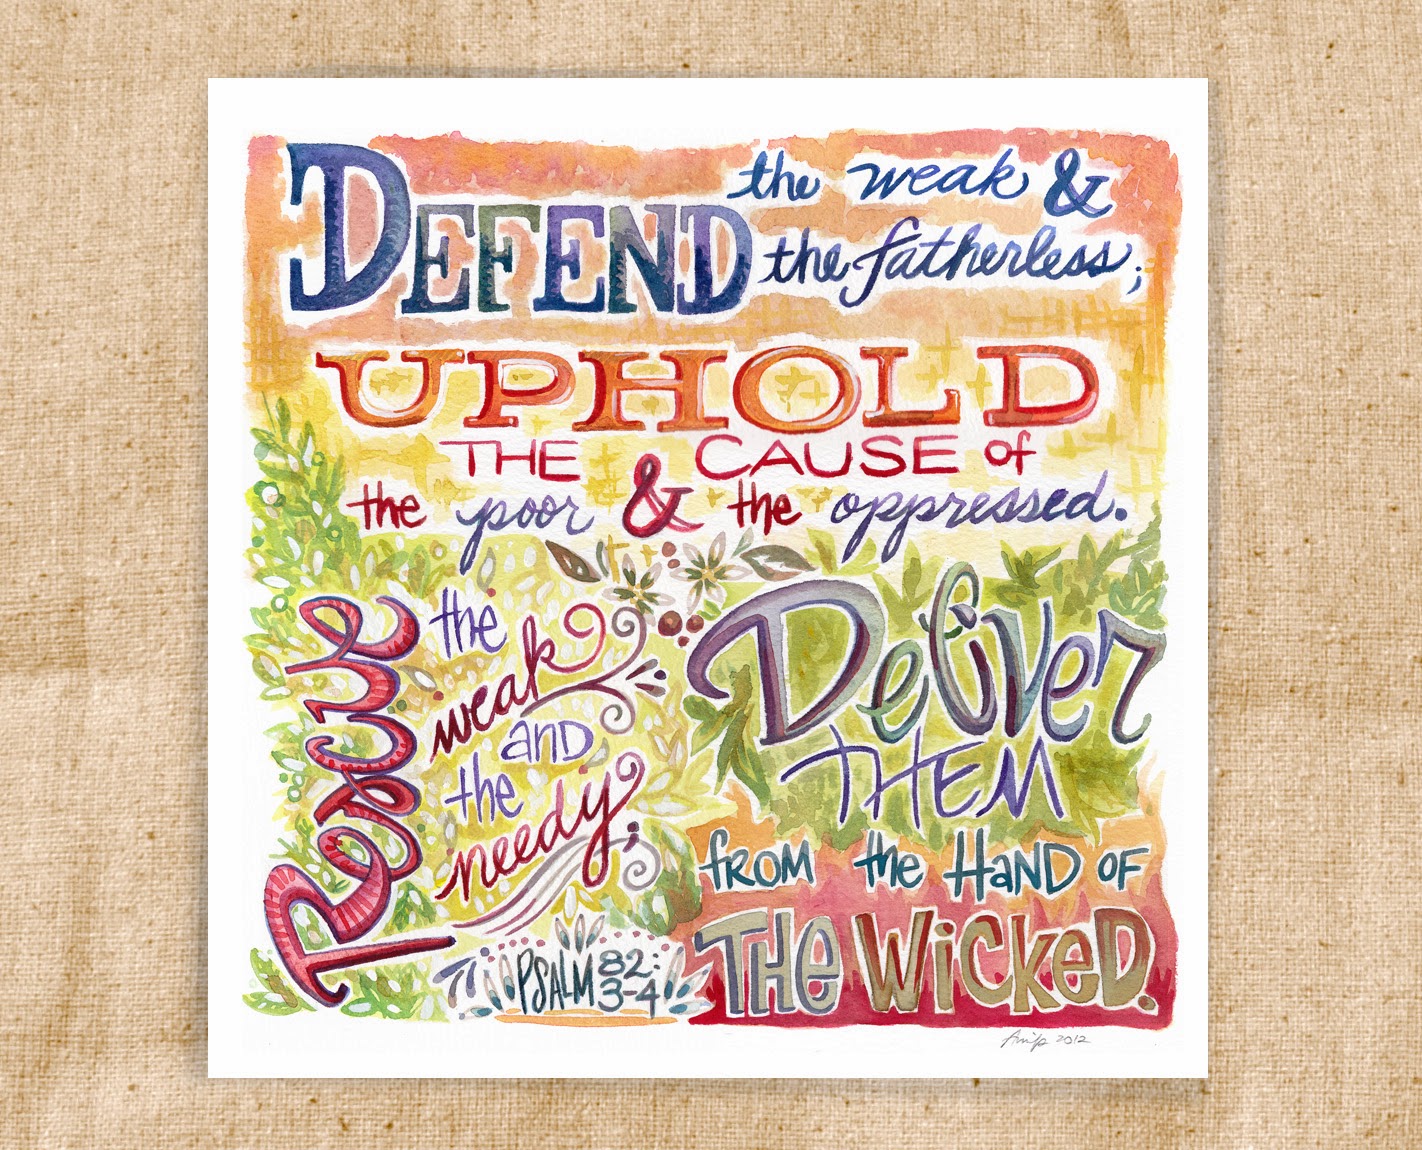 DEFEND the weak &
the fatherless;
UPHOLD
THE CAUSE of
the poor & the oppressed.
Rescue
the
weak
and
the
needy;
Deliver
THEM
FROM the HAND OF
THE WICKED.
PSALM 82:
3-4
2012